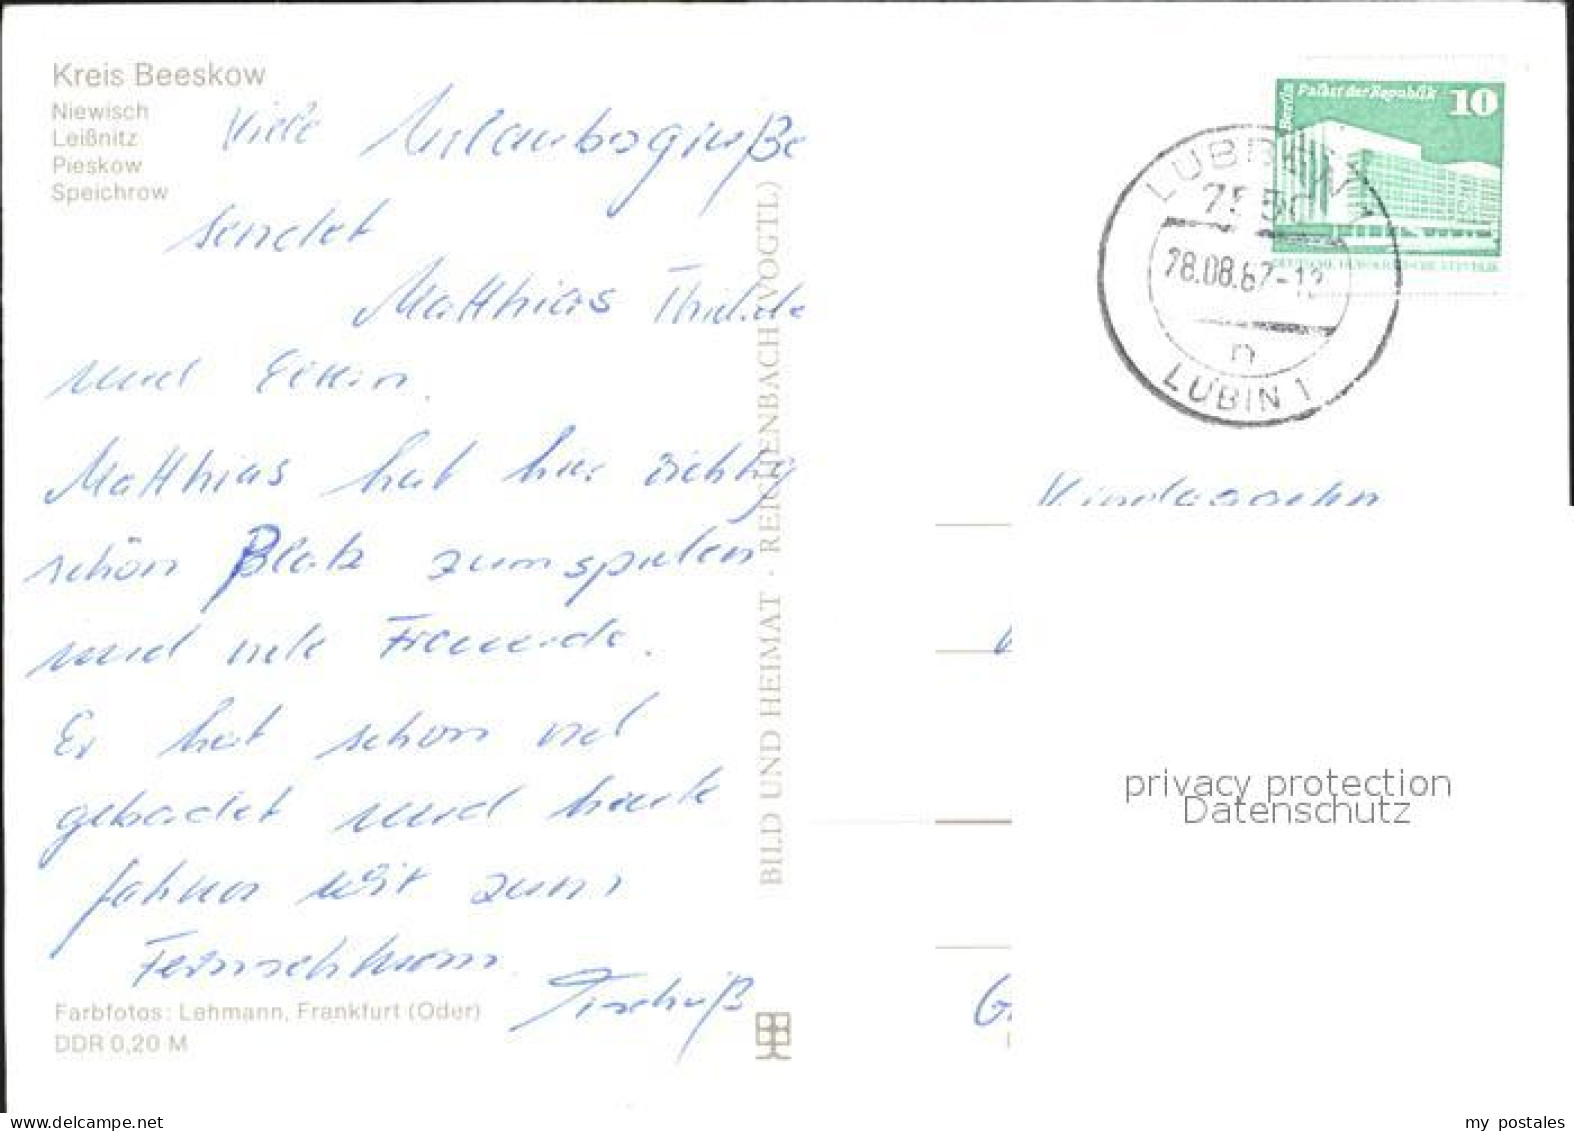 Kreis Beeskow
Niewisch
Leißnitz
Pieskow
Speichrow
Viele Urlaubsgrüße
sendet
Matthias
und Eltern.
Matthias hat hier richtig
schön Platz zum spielen
und viele Freunde.
Er hat schon viel
gebadet und heute
fahren wir zum
Fernsehturm.
Tschüß
Farbfotos: Lehmann, Frankfurt (Oder)
DDR 0,20 M
BILD UND HEIMAT · REICHENBACH (VOGTL)
Berlin Palast der Republik 10
DEUTSCHE DEMOKRATISCHE REPUBLIK
28.08.87-12
n
LUBIN 1
privacy protection
Datenschutz
www.delcampe.net
my_postales